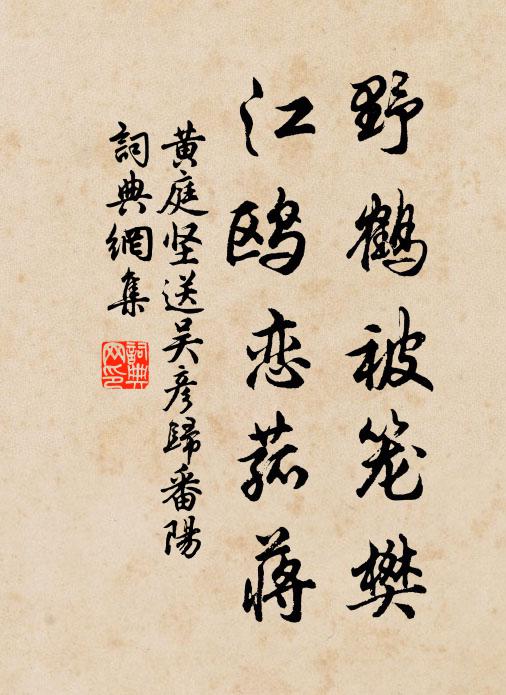 野鹤被笼樊
江鸥恋菰蒋
黄庭坚送吴彦歸番陽
詞典網集
詞典網印